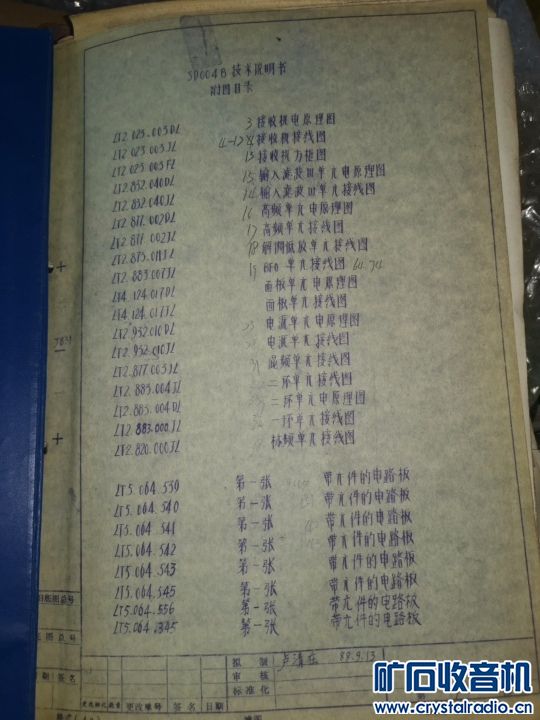 SD004B 技术说明书
附图目录
LT2.023.003DL 3 接收机电原理图
LT2.023.003JL 4-12 接收机接线图
LT2.023.003FL 13 接收机方框图
LT2.832.040DL 15 输入滤波III单元电原理图
LT2.832.040JL 14 输入滤波III单元接线图
LT2.877.002DL 16 高频单元电原理图
LT2.877.002JL 17 高频单元接线图
LT2.873.011JL 18 解调低放单元接线图
LT2.883.007JL 19 BFO 单元接线图
LT4.124.017DL 面板单元电原理图
LT4.124.017JL 面板单元接线图
LT2.932.010DL 电源单元电原理图
LT2.932.010JL 电源单元接线图
LT2.877.003JL 混频单元接线图
LT2.883.004JL 二环单元接线图
LT2.883.004DL 二环单元电原理图
LT2.883.000JL 一环单元接线图
LT2.820.000JL 标频单元接线图
LT5.064.539 第一张 带元件的电路板
LT5.064.540 第一张 带元件的电路板
LT5.064.541 第一张 带元件的电路板
LT5.064.542 第一张 带元件的电路板
LT5.064.543 第一张 带元件的电路板
LT5.064.545 第一张 带元件的电路板
LT5.064.556 第一张 带元件的电路板
LT5.064.345 第一张 带元件的电路板
旧底图总号
底图总号
日期 签名
更改标记 数量 更改单号 签名 日期
拟制 89.9.13
审核
标准化
矿石收音机
www.crystalradio.cn